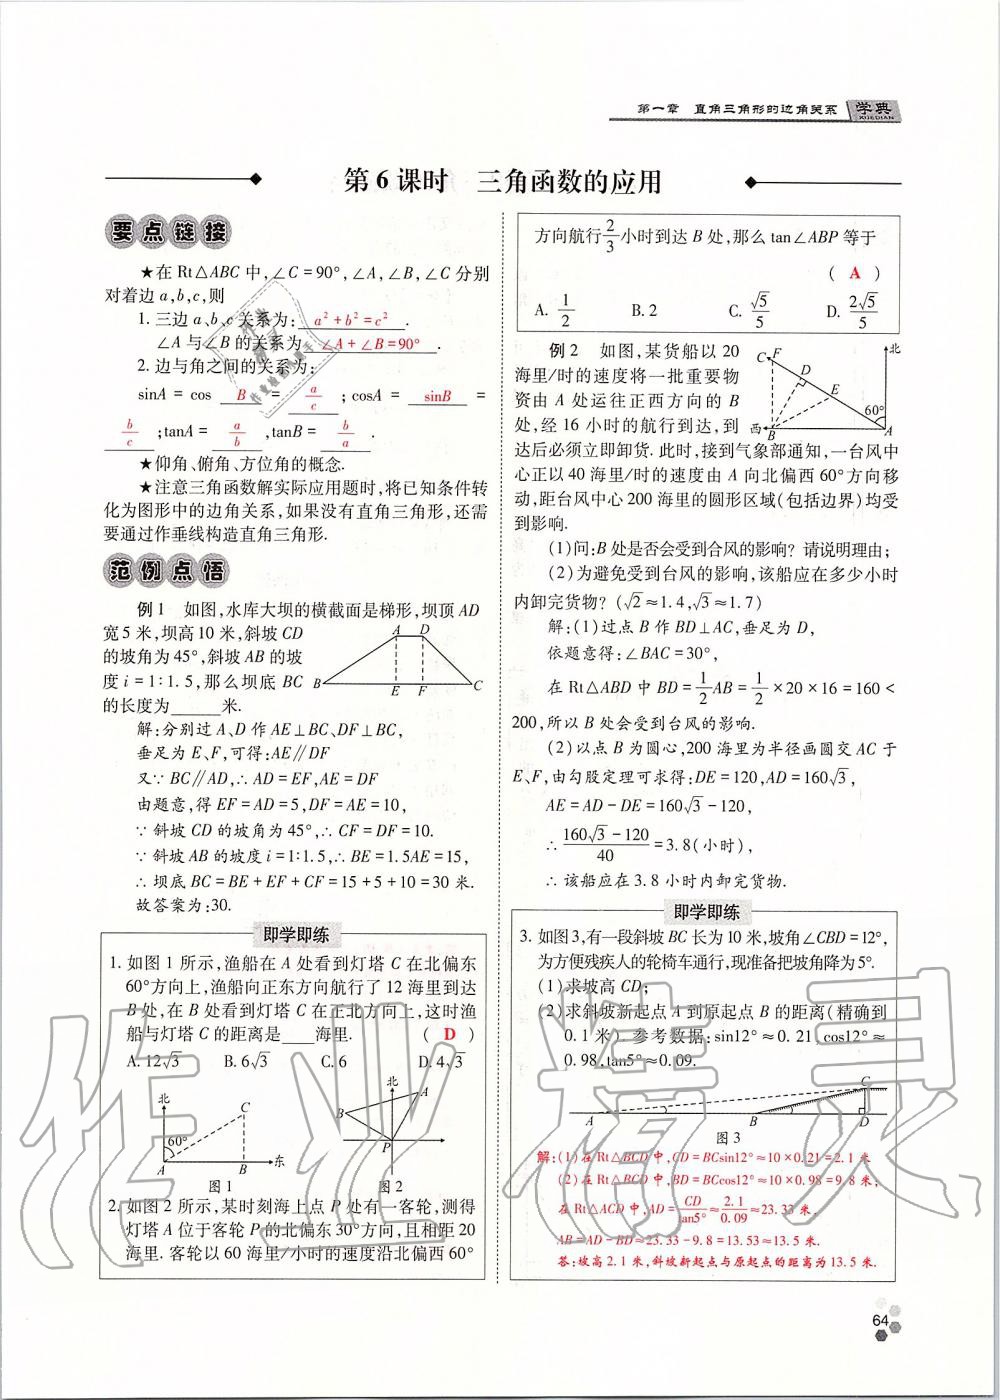 第一章 直角三角形的边角关系 学典
XUEDIAN
第6课时 三角函数的应用
要点链接
★在Rt△ABC中,∠C=90°,∠A,∠B,∠C分别
对着边a,b,c,则
1.三边a、b、c关系为: a²+b²=c² .
∠A与∠B的关系为 ∠A+∠B=90° .
2.边与角之间的关系为:
sinA = cos B = a/c ; cosA = sinB =
b/c ;tanA = a/b ,tanB = b/a .
★仰角、俯角、方位角的概念.
★注意三角函数解实际应用题时,将已知条件转
化为图形中的边角关系,如果没有直角三角形,还需
要通过作垂线构造直角三角形.
范例点悟
例1 如图,水库大坝的横截面是梯形,坝顶AD
宽5米,坝高10米,斜坡CD
的坡角为45°,斜坡AB的坡
度i=1∶1.5,那么坝底BC
的长度为______米.
A D
B E F C
解:分别过A、D作AE⊥BC、DF⊥BC,
垂足为E、F,可得:AE∥DF
又∵BC∥AD,∴AD=EF,AE=DF
由题意,得EF=AD=5,DF=AE=10,
∵斜坡CD的坡角为45°,∴CF=DF=10.
∵斜坡AB的坡度i=1∶1.5,∴BE=1.5AE=15,
∴坝底BC=BE+EF+CF=15+5+10=30米.
故答案为:30.
即学即练
1.如图1所示,渔船在A处看到灯塔C在北偏东
60°方向上,渔船向正东方向航行了12海里到达
B处,在B处看到灯塔C在正北方向上,这时渔
船与灯塔C的距离是____海里. ( D )
A.12√3 B.6√3 C.6 D.4√3
北 C 60° A B 东
图1
北 A B P
图2
2.如图2所示,某时刻海上点P处有一客轮,测得
灯塔A位于客轮P的北偏东30°方向,且相距20
海里.客轮以60海里/小时的速度沿北偏西60°
方向航行2/3小时到达B处,那么tan∠ABP等于
( A )
A. 1/2 B. 2 C. √5/5 D. 2√5/5
例2 如图,某货船以20
海里/时的速度将一批重要物
资由A处运往正西方向的B
处,经16小时的航行到达,到
北 C F D E 60° 西 B A
达后必须立即卸货.此时,接到气象部通知,一台风中
心正以40海里/时的速度由A向北偏西60°方向移
动,距台风中心200海里的圆形区域(包括边界)均受
到影响.
(1)问:B处是否会受到台风的影响?请说明理由;
(2)为避免受到台风的影响,该船应在多少小时
内卸完货物?(√2≈1.4,√3≈1.7)
解:(1)过点B作BD⊥AC,垂足为D,
依题意得:∠BAC=30°,
在Rt△ABD中BD=1/2AB=1/2×20×16=160<
200,所以B处会受到台风的影响.
(2)以点B为圆心,200海里为半径画圆交AC于
E、F,由勾股定理可求得:DE=120,AD=160√3,
AE=AD-DE=160√3-120,
∴(160√3-120)/40=3.8(小时),
∴该船应在3.8小时内卸完货物.
即学即练
3.如图3,有一段斜坡BC长为10米,坡角∠CBD=12°,
为方便残疾人的轮椅车通行,现准备把坡角降为5°.
(1)求坡高CD;
(2)求斜坡新起点A到原起点B的距离(精确到
0.1米).参考数据:sin12°≈0.21,cos12°≈
0.98,tan5°≈0.09.
C
A B D
图3
解:(1)在Rt△BCD中,CD=BCsin12°≈10×0.21=2.1米
(2)在Rt△BCD中,BD=BCcos12°≈10×0.98=9.8米,
在Rt△ACD中,AD=CD/tan5°≈2.1/0.09≈23.33米.
AB=AD-BD≈23.33-9.8=13.53≈13.5米.
答:坡高2.1米,斜坡新起点与原起点的距离为13.5米.
64
作业精灵